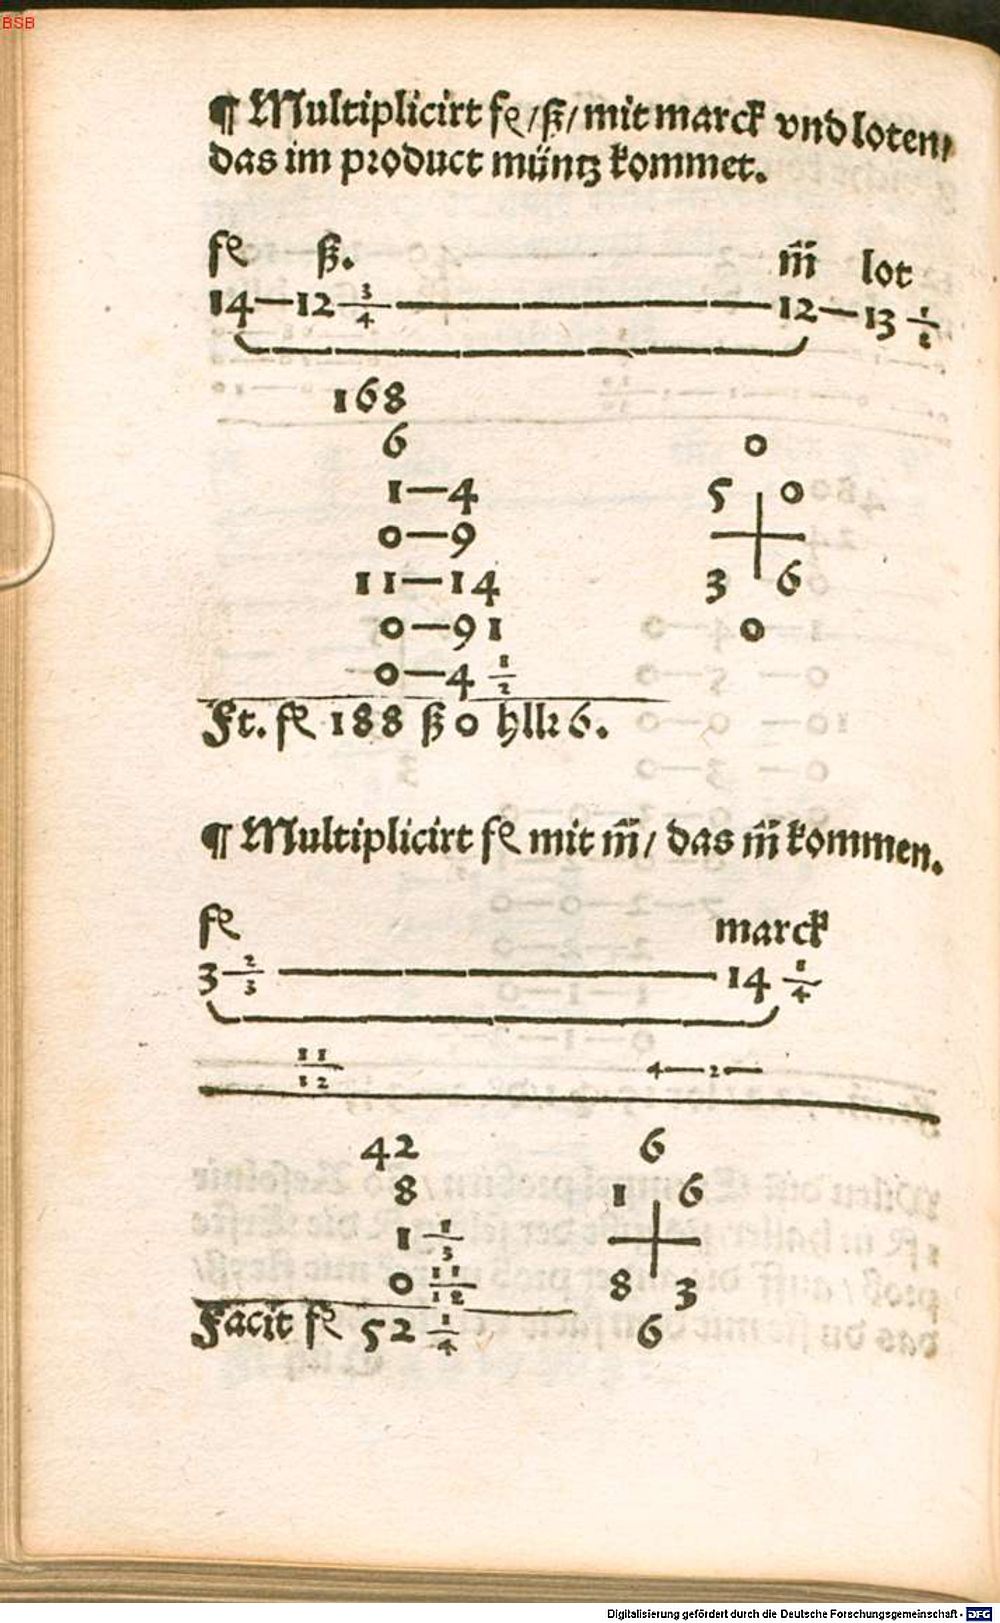 BSB
¶ Multiplicirt fe/ß/ mit marck vnd loten/
das im product müntz kommet.
fe ß. m̃ lot
14—12 3/4 — 12—13 1/2
168
6
1—4
0—9
11—14
0—91
0—4 1/2
0
5 0
3 6
0
Ft. fe 188 ß 0 hllr 6.
¶ Multiplicirt fe mit m̃/ das m̃ kommen.
fe marck
3 2/3 — 14 1/4
11/12 4—2—
42
8
1 1/3
0 11/12
6
1 6
8 3
6
Facit fe 52 1/4
Digitalisierung gefördert durch die Deutsche Forschungsgemeinschaft - DFG